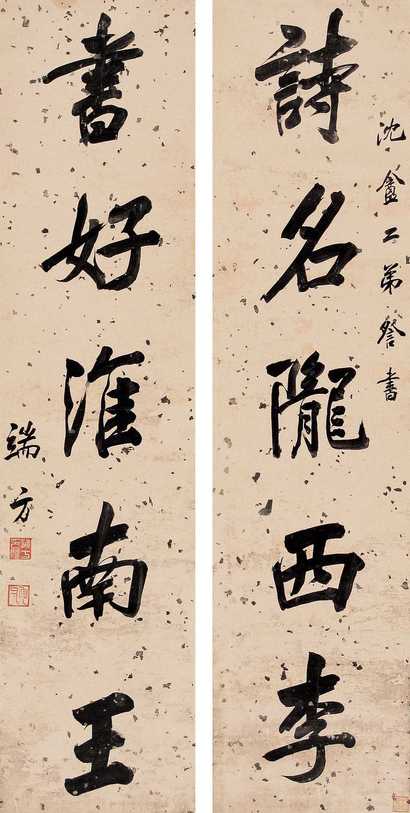 沈盦二弟督書
詩名隴西李
書好淮南王
端方